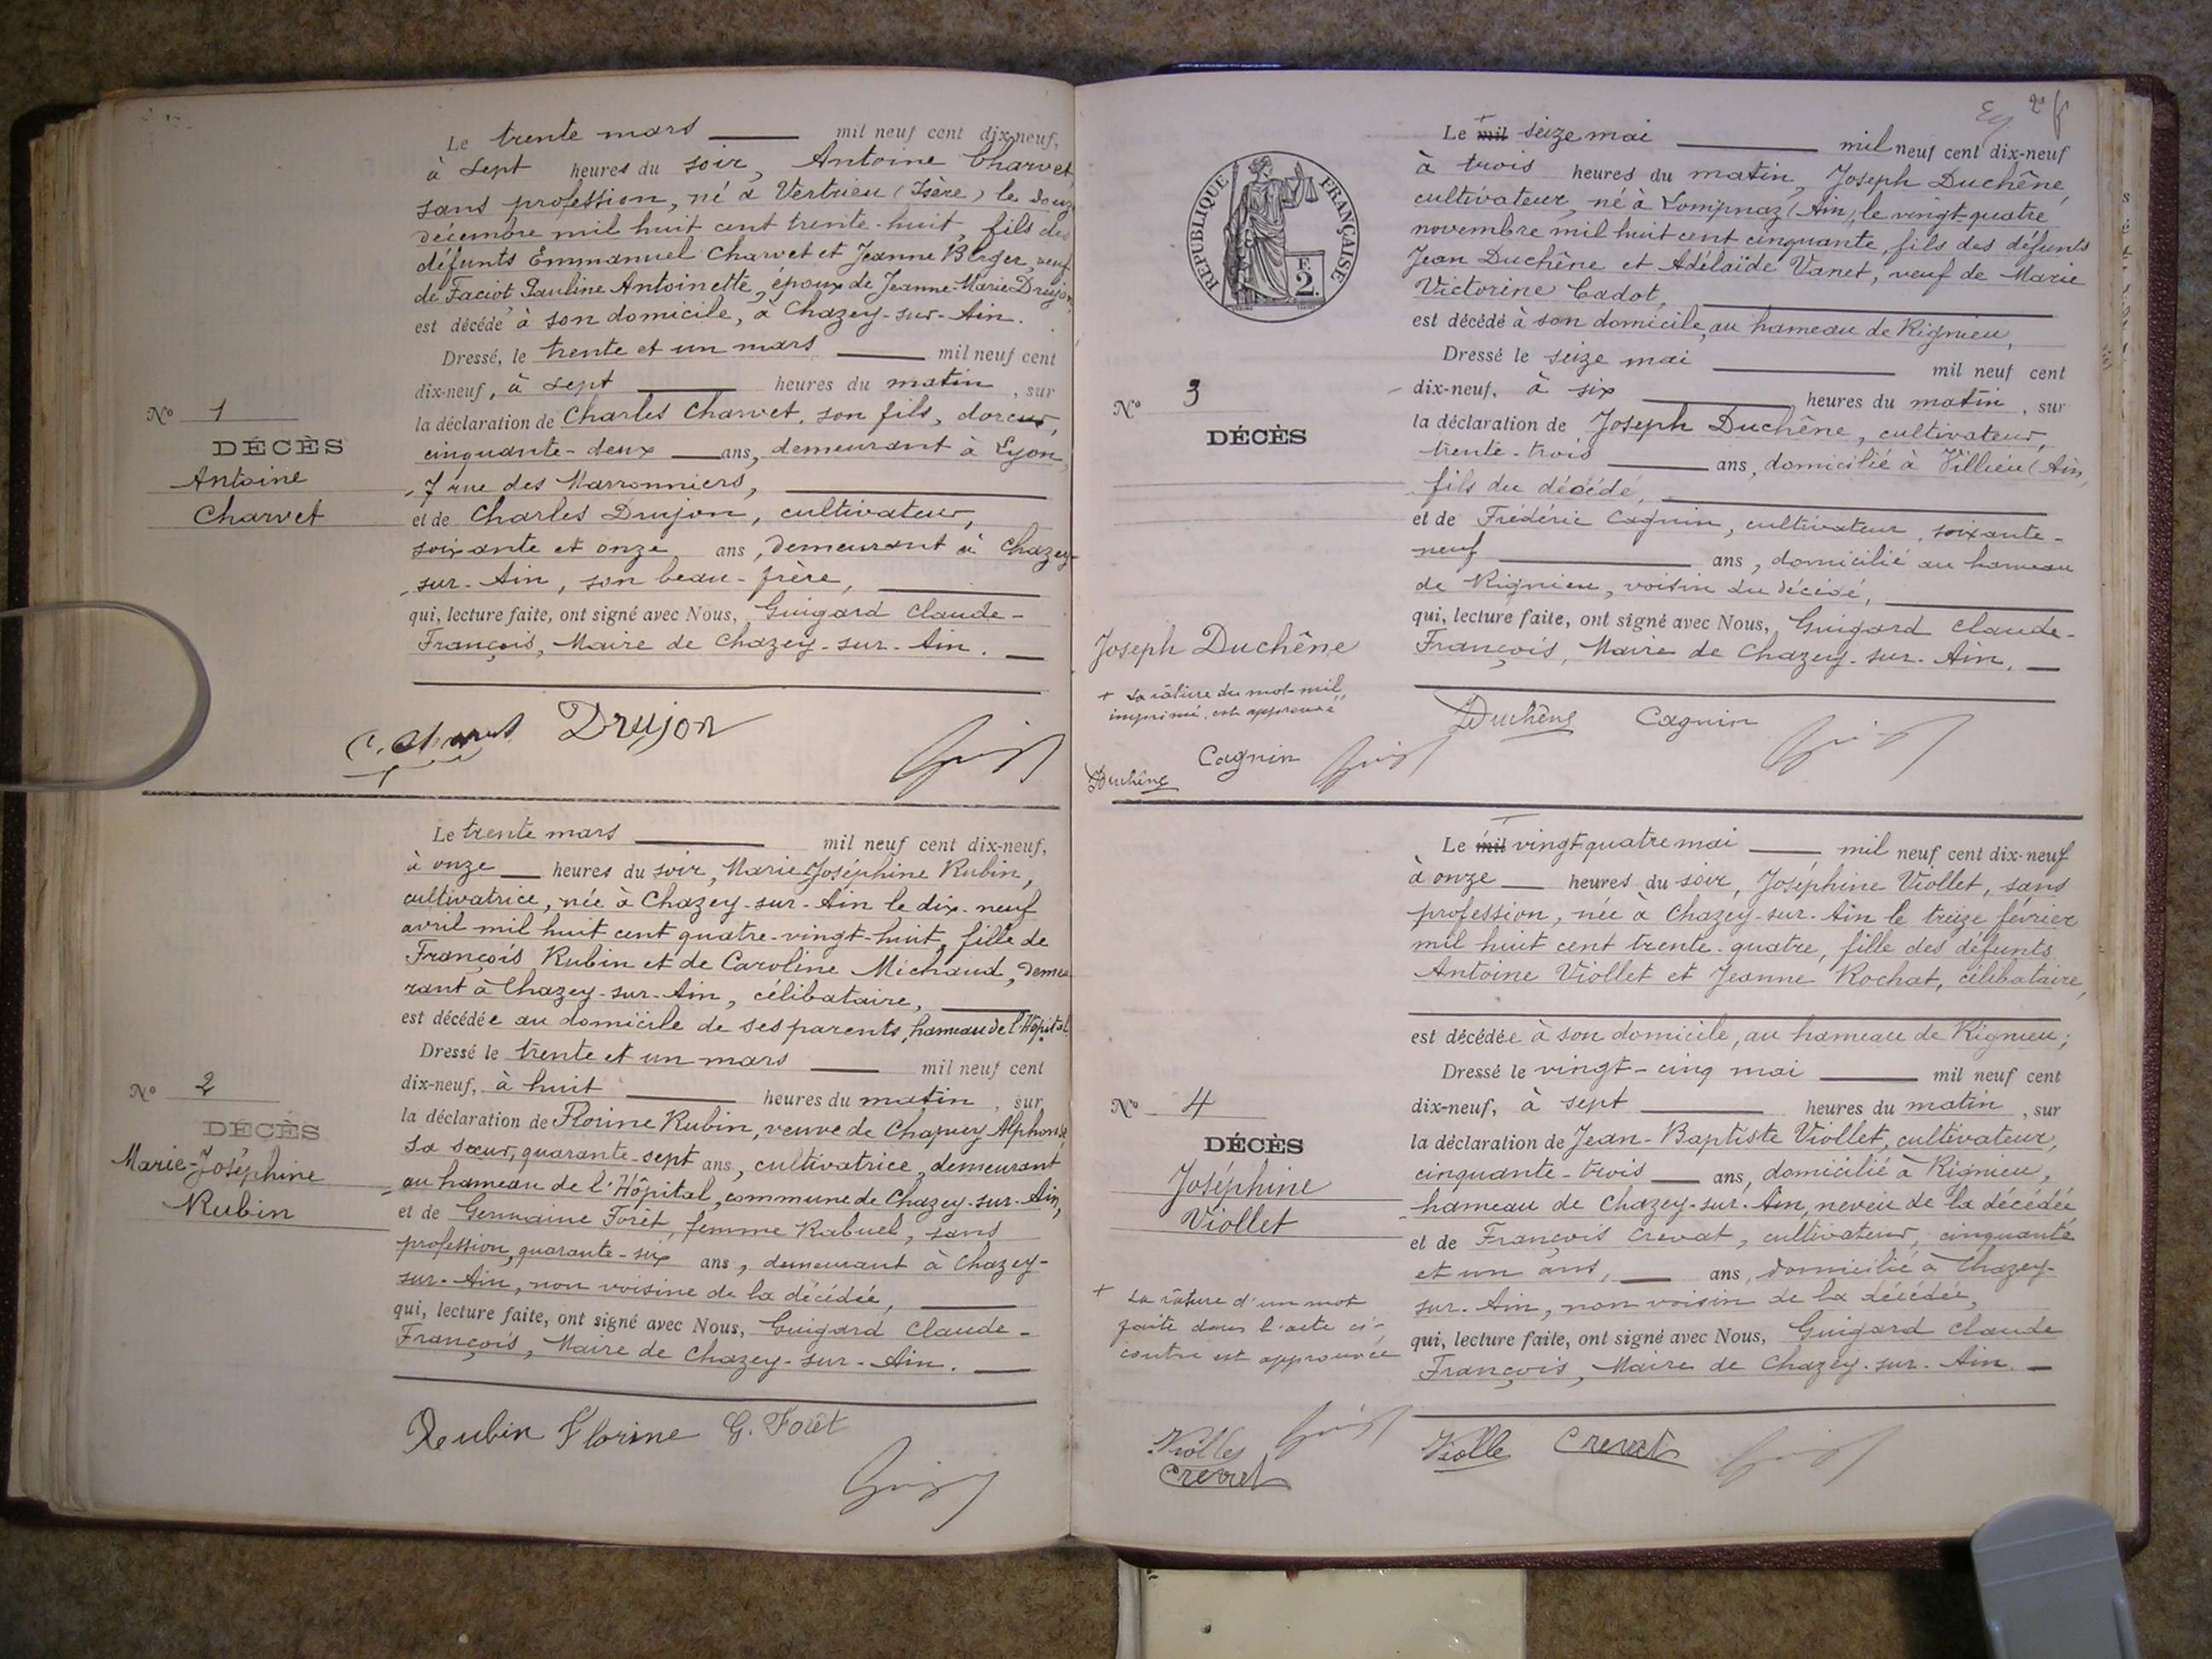 Le trente mars mil neuf cent dix-neuf,
à sept heures du soir, Antoine Charvet,
sans profession, né à Vertrieu (Isère) le douze
décembre mil huit cent trente-huit, fils des
défunts Emmanuel Charvet et Jeanne Berger, veuf
de Faciot Pauline Antoinette, époux de Jeanne-Marie Drujon,
est décédé à son domicile, à Chazey-sur-Ain.
Dressé, le trente et un mars mil neuf cent
dix-neuf, à sept heures du matin, sur
la déclaration de Charles Charvet, son fils, doreur,
cinquante-deux ans, demeurant à Lyon,
7 rue des Marronniers,
et de Charles Drujon, cultivateur,
soixante et onze ans, demeurant à Chazey-
sur-Ain, son beau-frère,
qui, lecture faite, ont signé avec Nous, Guigard Claude-
François, Maire de Chazey-sur-Ain.
N° 1
DÉCÈS
Antoine
Charvet
C. Charvet Drujon
Le trente mars mil neuf cent dix-neuf,
à onze heures du soir, Marie-Joséphine Rubin,
cultivatrice, née à Chazey-sur-Ain le dix-neuf
avril mil huit cent quatre-vingt-huit, fille de
François Rubin et de Caroline Michaud, demeu-
rant à Chazey-sur-Ain, célibataire,
est décédée au domicile de ses parents, hameau de l'Hôpital.
Dressé le trente et un mars mil neuf cent
dix-neuf, à huit heures du matin, sur
la déclaration de Florine Rubin, veuve de Chapuy Alphonse,
sa sœur, quarante-sept ans, cultivatrice, demeurant
au hameau de l'Hôpital, commune de Chazey-sur-Ain,
et de Germaine Forêt, femme Rabuel, sans
profession, quarante-six ans, demeurant à Chazey-
sur-Ain, non voisine de la décédée,
qui, lecture faite, ont signé avec Nous, Guigard Claude-
François, Maire de Chazey-sur-Ain.
N° 2
DÉCÈS
Marie-Joséphine
Rubin
Reubin Florine G. Forêt
2
RÉPUBLIQUE FRANÇAISE
2 F.
Le mil seize mai mil neuf cent dix-neuf
à trois heures du matin, Joseph Duchêne,
cultivateur, né à Lompnaz (Ain), le vingt-quatre
novembre mil huit cent cinquante, fils des défunts
Jean Duchêne et Adélaïde Vanet, veuf de Marie
Victorine Cadot,
est décédé à son domicile, au hameau de Rignieu,
Dressé le seize mai mil neuf cent
dix-neuf, à six heures du matin, sur
la déclaration de Joseph Duchêne, cultivateur,
trente-trois ans, domicilié à Villieu (Ain),
fils du décédé,
et de Frédéric Cagnin, cultivateur, soixante-
neuf ans, domicilié au hameau
de Rignieu, voisin du décédé,
qui, lecture faite, ont signé avec Nous, Guigard Claude-
François, Maire de Chazey-sur-Ain.
N° 3
DÉCÈS
Joseph Duchêne
+ La râture du mot "mil"
imprimé, est approuvée
Duchêne Cagnin
Duchêne Cagnin
Le mil vingt-quatre mai mil neuf cent dix-neuf
à onze heures du soir, Joséphine Viollet, sans
profession, née à Chazey-sur-Ain le treize février
mil huit cent trente-quatre, fille des défunts
Antoine Viollet et Jeanne Rochat, célibataire,
est décédée à son domicile, au hameau de Rignieu;
Dressé le vingt-cinq mai mil neuf cent
dix-neuf, à sept heures du matin, sur
la déclaration de Jean-Baptiste Viollet, cultivateur,
cinquante-trois ans, domicilié à Rignieu,
hameau de Chazey-sur-Ain, neveu de la décédée
et de François Crevat, cultivateur, cinquante
et un ans, ans, domicilié à Chazey-
sur-Ain, non voisin de la décédée,
qui, lecture faite, ont signé avec Nous, Guigard Claude
François, Maire de Chazey-sur-Ain.
N° 4
DÉCÈS
Joséphine
Viollet
+ La râture d'un mot
faite dans l'acte ci-
contre est approuvée
Viollet
Crevat
Violle Crevat